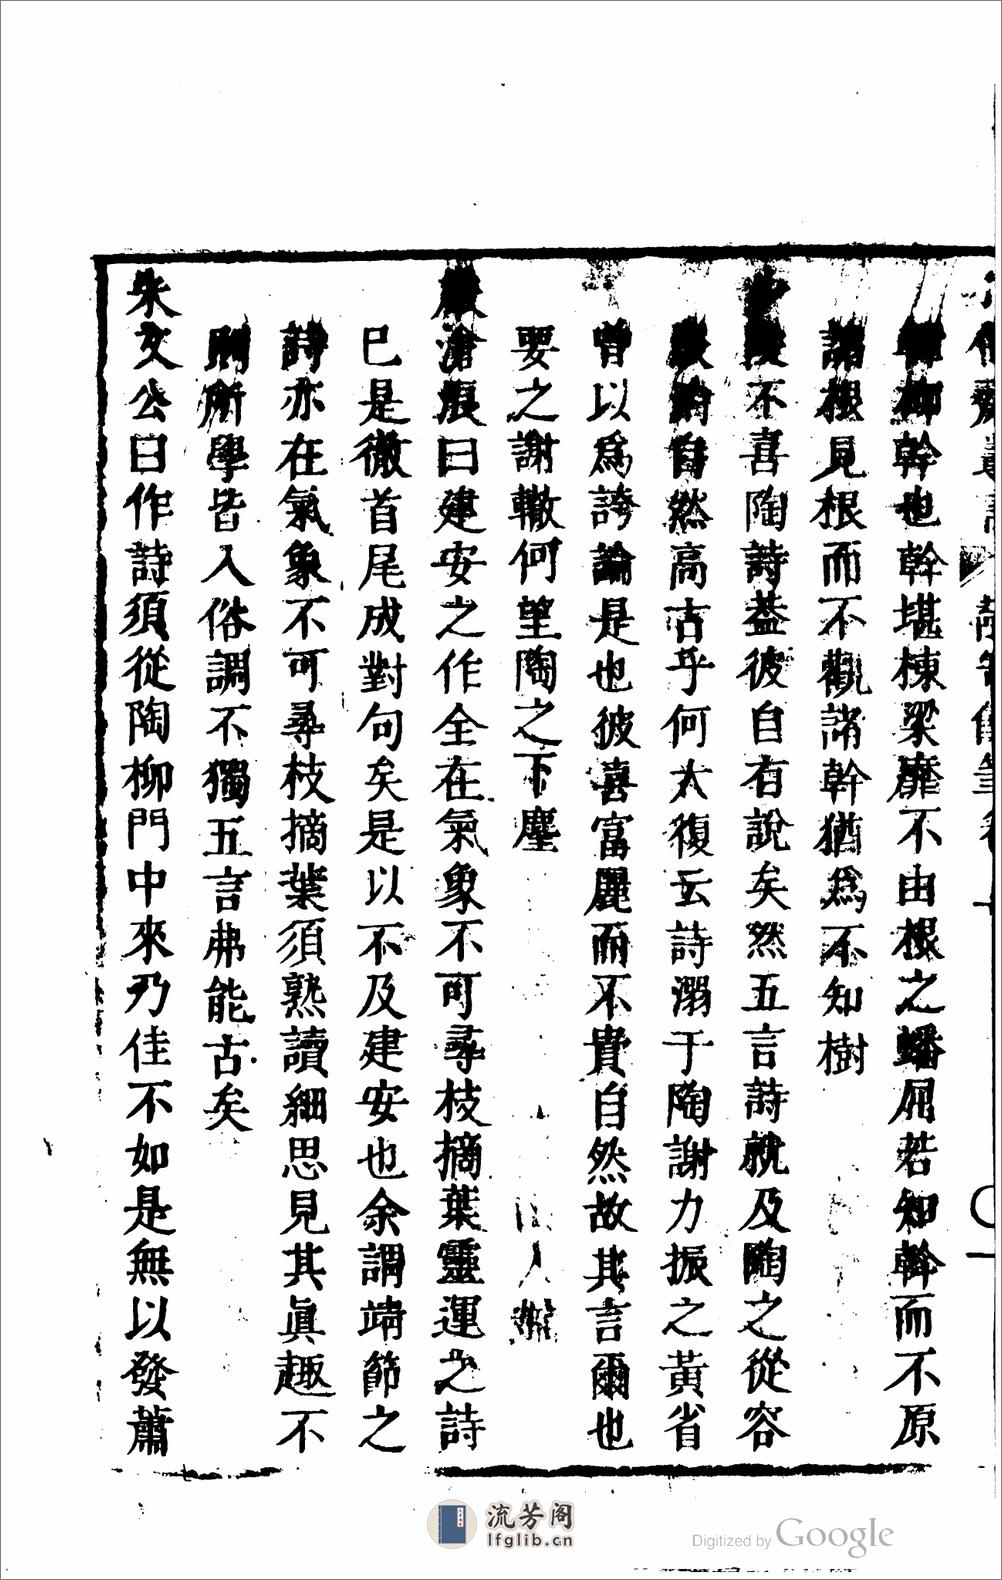 柳幹也幹堪棟梁靡不由根之蟠屈若知幹而不原
諸根見根而不觀諸幹猶爲不知樹
少陵不喜陶詩葢彼自有說矣然五言詩就及陶之從容
自然高古乎何大復云詩溺于陶謝力振之黃省
曾以爲誇論是也彼喜富麗而不貴自然故其言爾也
要之謝轍何望陶之下塵
嚴滄浪曰建安之作全在氣象不可尋枝摘葉靈運之詩
已是徹首尾成對句矣是以不及建安也余謂靖節之
詩亦在氣象不可尋枝摘葉須熟讀細思見其眞趣不
則所學皆入俗調不獨五言弗能古矣
朱文公曰作詩須從陶柳門中來乃佳不如是無以發蕭
流芳阁
lfglib.cn
Digitized by Google